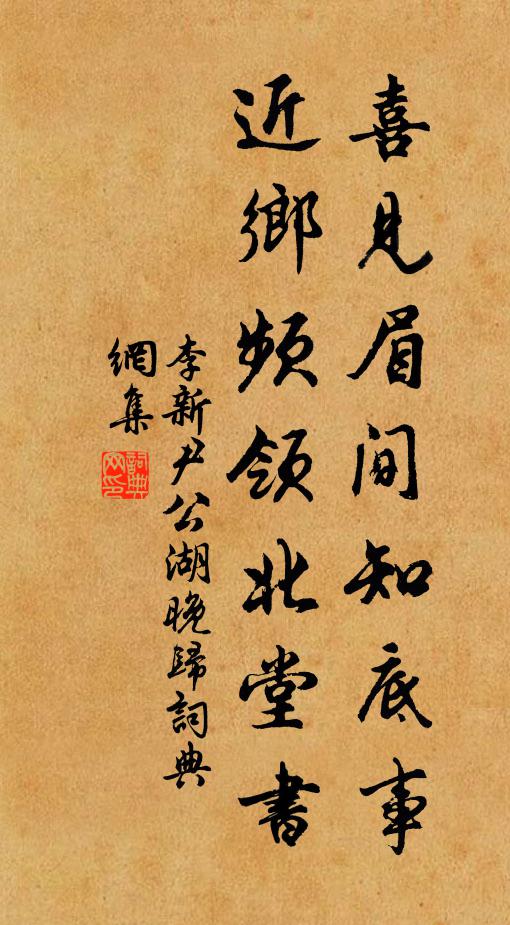 喜見眉間知底事
近鄉頻領北堂書
李新尹公湖晚歸詞典
網集
詞典
网印